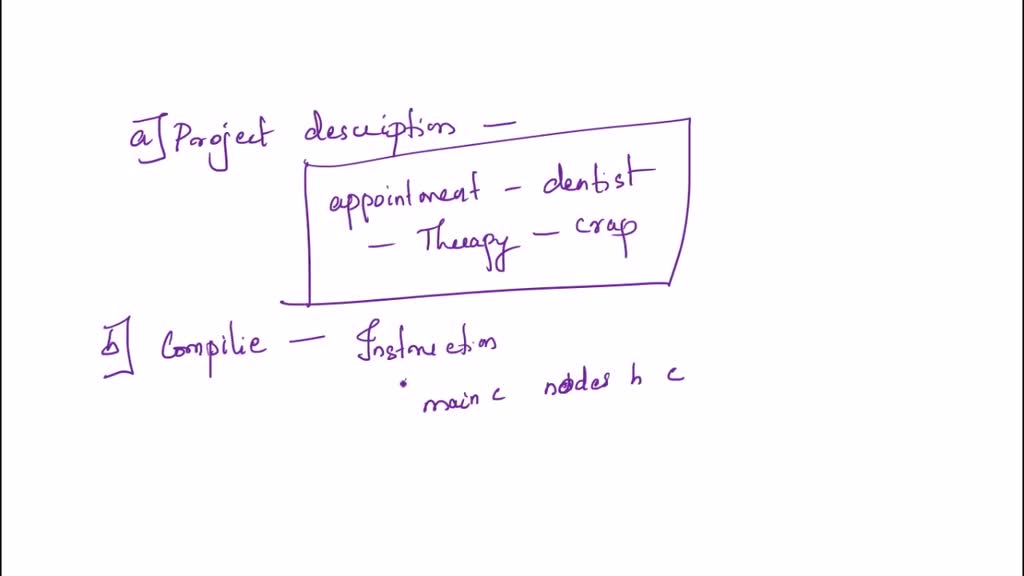 a] Project description —
appointment - dentist
- Therapy - crap
b] Compilie - Instruction
• main c nodes h c